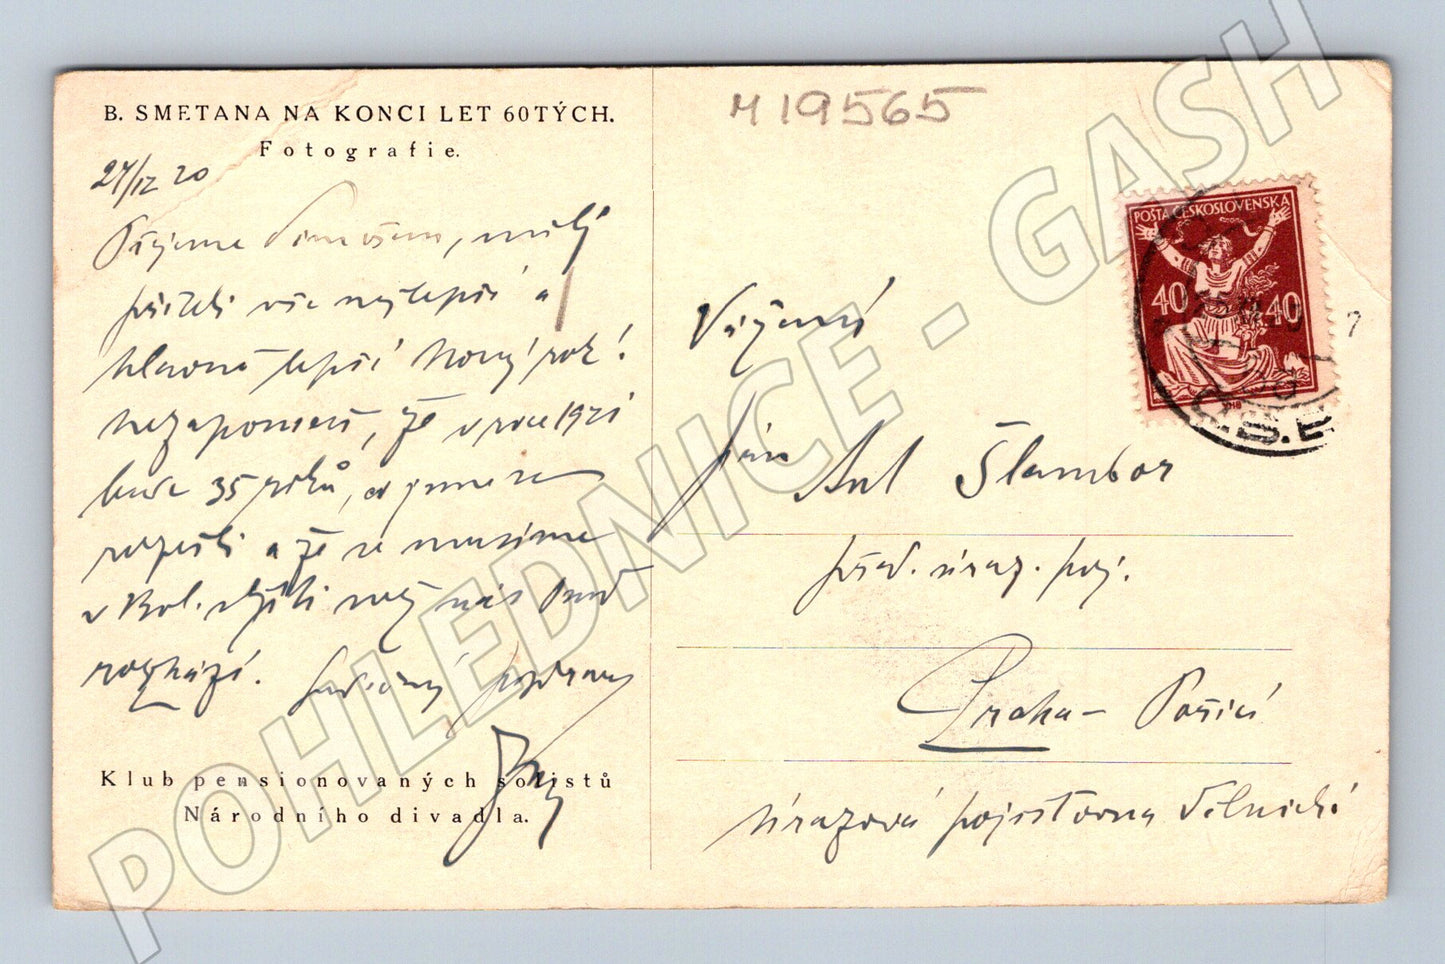 B. SMETANA NA KONCI LET 60TÝCH.
Fotografie.
27/12 20
Přejeme Vám všem, milý
příteli vše nejlepší a
hlavně lepší Nový rok!
Nezapomeň, že v roce 1921
bude 35 roků, co jsme se
sešli a že se musíme
v Bol. sejíti než nás
rozhází. Srdečný pozdrav
Klub pensionovaných solistů
Národního divadla.
M 19565
POŠTA ČESKOSLOVENSKÁ
40 40
Vážený
pán Ant Šlambor
před. úraz. poj.
Praha - Poříčí
úrazová pojišťovna dělnická
POHLEDNICE - GASH